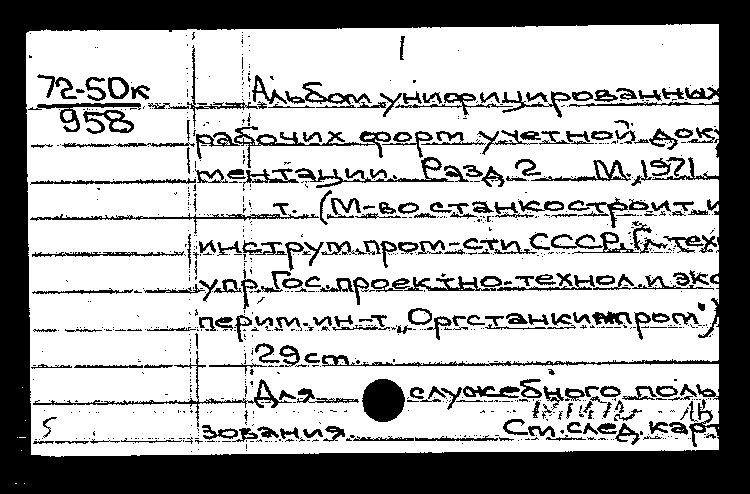 1
72-50к
958
Альбом унифицированных
рабочих форм учетной доку
ментации. Разд. 2 М., 1971.
т. (М-во станкостроит. и
инструм. пром-сти СССР. Гл. тех
упр. Гос. проектно-технол. и экс
перим. ин-т „Оргстанкинпром")
29 cm.
Для служебного поль
зования.
См. след. карт
5